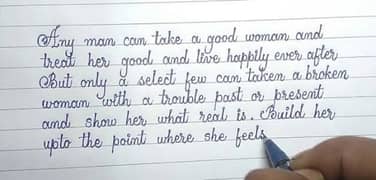 Any man can take a good woman and
treat her good and live happily ever after
But only a select few can taken a broken
woman with a trouble past or present
and show her what real is. Build her
upto the point where she feels